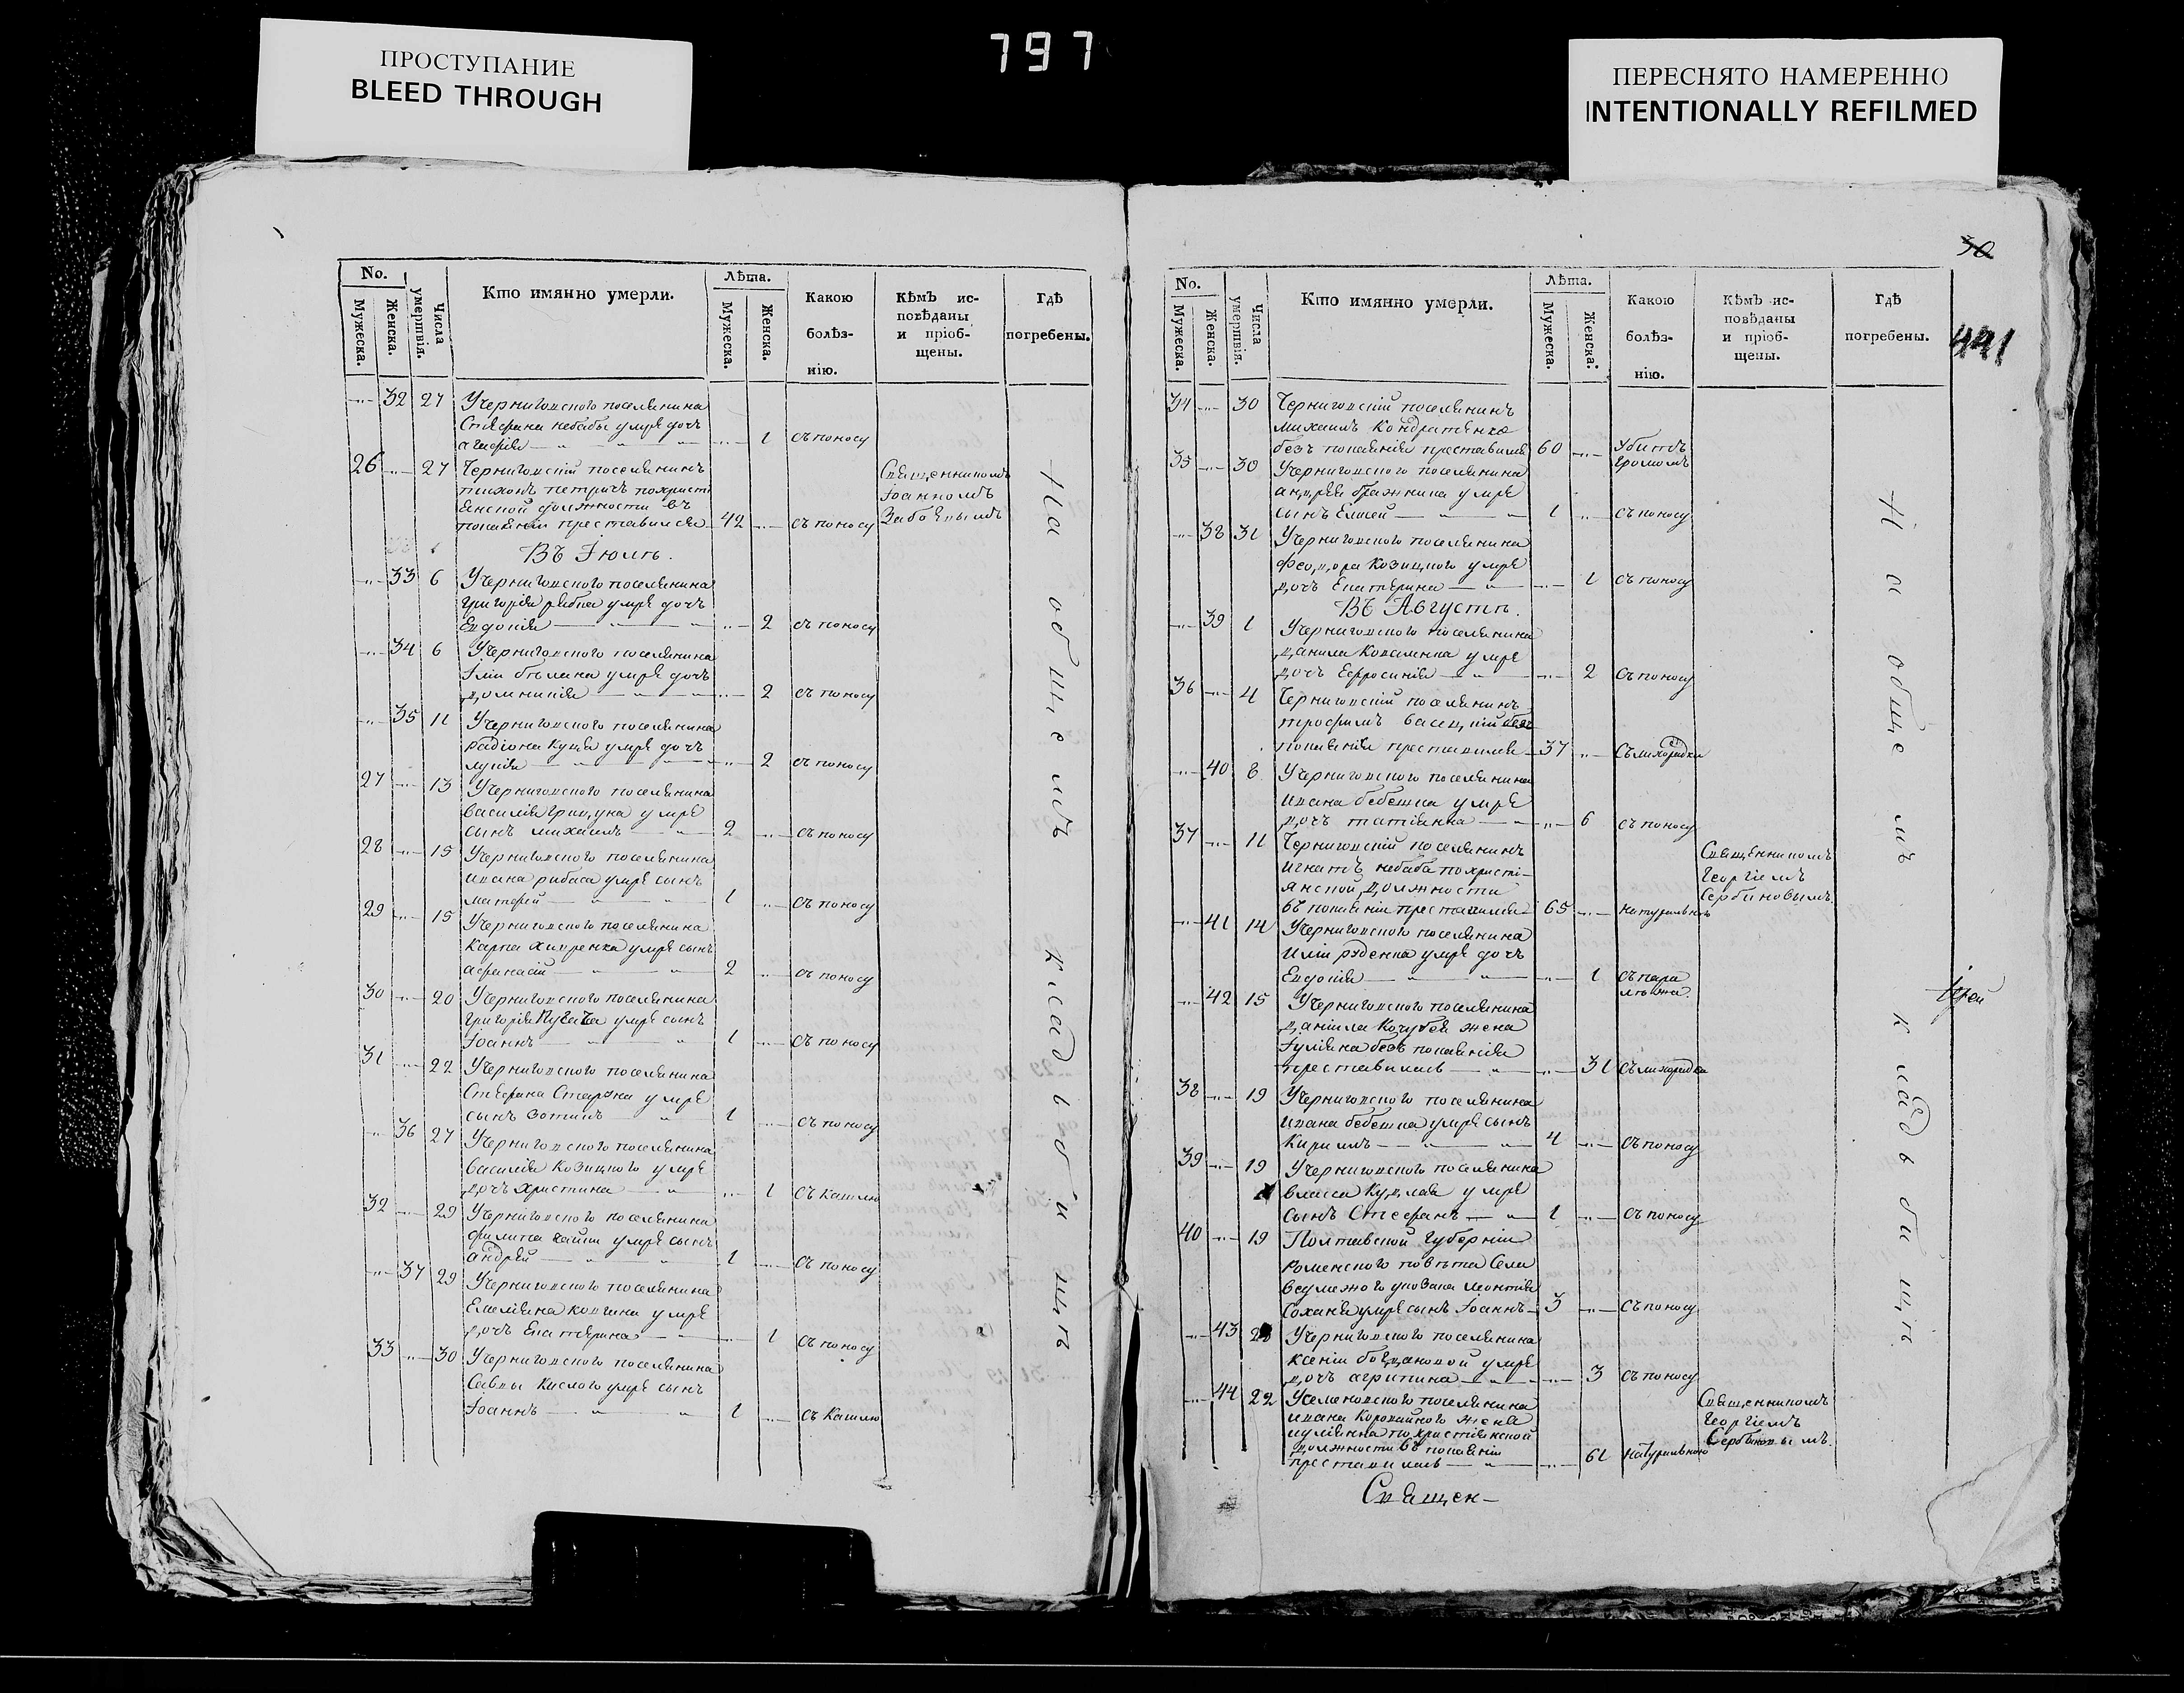 797
ПРОСТУПАНИЕ
BLEED THROUGH
ПЕРЕСНЯТО НАМЕРЕННО
INTENTIONALLY REFILMED
No. Мужеска. Женска.
Числа умертвія.
Кто имянно умерли.
Лѣта. Мужеска. Женска.
Какою болѣз-
нію.
Кѣмъ ис-
повѣданы
и пріоб-
щены.
Гдѣ
погребены.
32 27 Учерниговского поселянина
Стефана небабы умре дочъ
агафія 1 съ поносу
26 27 Черниговскій поселянинъ
тихонъ петричъ похристі
янской должности въ
покаяніи преставился 42 съ поносу
Священникомъ
Іоанномъ
Въ Іюлѣ.
33 6 Учерниговского поселянина
григорія умре дочъ
Евдокія 2 съ поносу
34 6 Учерниговского поселянина
Іліи умре дочъ
домникія 2 съ поносу
35 11 Учерниговского поселянина
радіона умре дочъ
лукія 2 съ поносу
27 13 Учерниговского поселянина
василія грицуна умре
сынъ михаилъ 2 съ поносу
28 15 Учерниговского поселянина
ивана рибаса умре сынъ
матфей 1 съ поносу
29 15 Учерниговского поселянина
карпа умре сынъ
афанасій 2 съ поносу
30 20 Учерниговского поселянина
григорія Пугача умре сынъ
Іоаннъ 1 съ поносу
31 22 Учерниговского поселянина
Стефана умре
сынъ зотикъ 1 съ поносу
36 27 Учерниговского поселянина
василія Козицкого умре
дочъ христина 1 съ кашлю
32 29 Учерниговского поселянина
филипа умре сынъ
андрей 1 съ поносу
37 29 Учерниговского поселянина
Емеліяна умре
дочъ Екатерина 1 съ поносу
33 30 Учерниговского поселянина
Савы Кислого умре сынъ
Іоаннъ 1 съ кашлю
На общемъ кладбищѣ
30
441
No. Мужеска. Женска.
Числа умертвія.
Кто имянно умерли.
Лѣта. Мужеска. Женска.
Какою
болѣз-
нію.
Кѣмъ ис-
повѣданы
и пріоб-
щены.
Гдѣ
погребены.
34 30 Черниговскій поселянинъ
михаилъ Кондратенко
безъ покаянія преставился 60 Убитъ
громомъ
35 30 Учерниговского поселянина
андрея бражника умре
сынъ Елисей 1 съ поносу
38 31 Учерниговского поселянина
Феодора Козицкого умре
дочъ Екатерина 1 съ поносу
Въ Августѣ.
39 1 Учерниговского поселянина
данила умре
дочъ Ефросинія 2 съ поносу
36 4 Черниговскій поселянинъ
трофимъ безъ
покаянія преставился 37 съ лихорадки
40 8 Учерниговского поселянина
ивана бебешка умре
дочъ татіянна 6 съ поносу
37 11 Черниговскій поселянинъ
игнатъ небаба похристі-
янской должности
въ покаяніи преставился 65 натурально
Священникомъ
Георгіемъ
Сербиновымъ.
41 14 Учерниговского поселянина
Иліи руденка умре дочъ
Евдокія 1 съ пара
42 15 Учерниговского поселянина
данііла Кочубея жена
Іуліяна безъ покаянія
преставилась 31 съ лихорадки
38 19 Учерниговского поселянина
ивана бебешка умре сынъ
Кирилъ 4 съ поносу
39 19 Учерниговского поселянина
власа умре
сынъ Стефанъ 1 съ поносу
40 19 Полтавской Губерніи
роменского повѣта Села
леонтія
умре сынъ Іоаннъ 3 съ поносу
43 Учерниговского поселянина
ксеніи умре
дочъ агрипина 3 съ поносу
44 22 Усеменовского поселянина
ивана жена
иуліянна похристіянской
должности въ покаяніи
преставилась 61 натурально
Священникомъ
Георгіемъ
Сербиновымъ.
На общемъ кладбищѣ
Іерей
Священ-